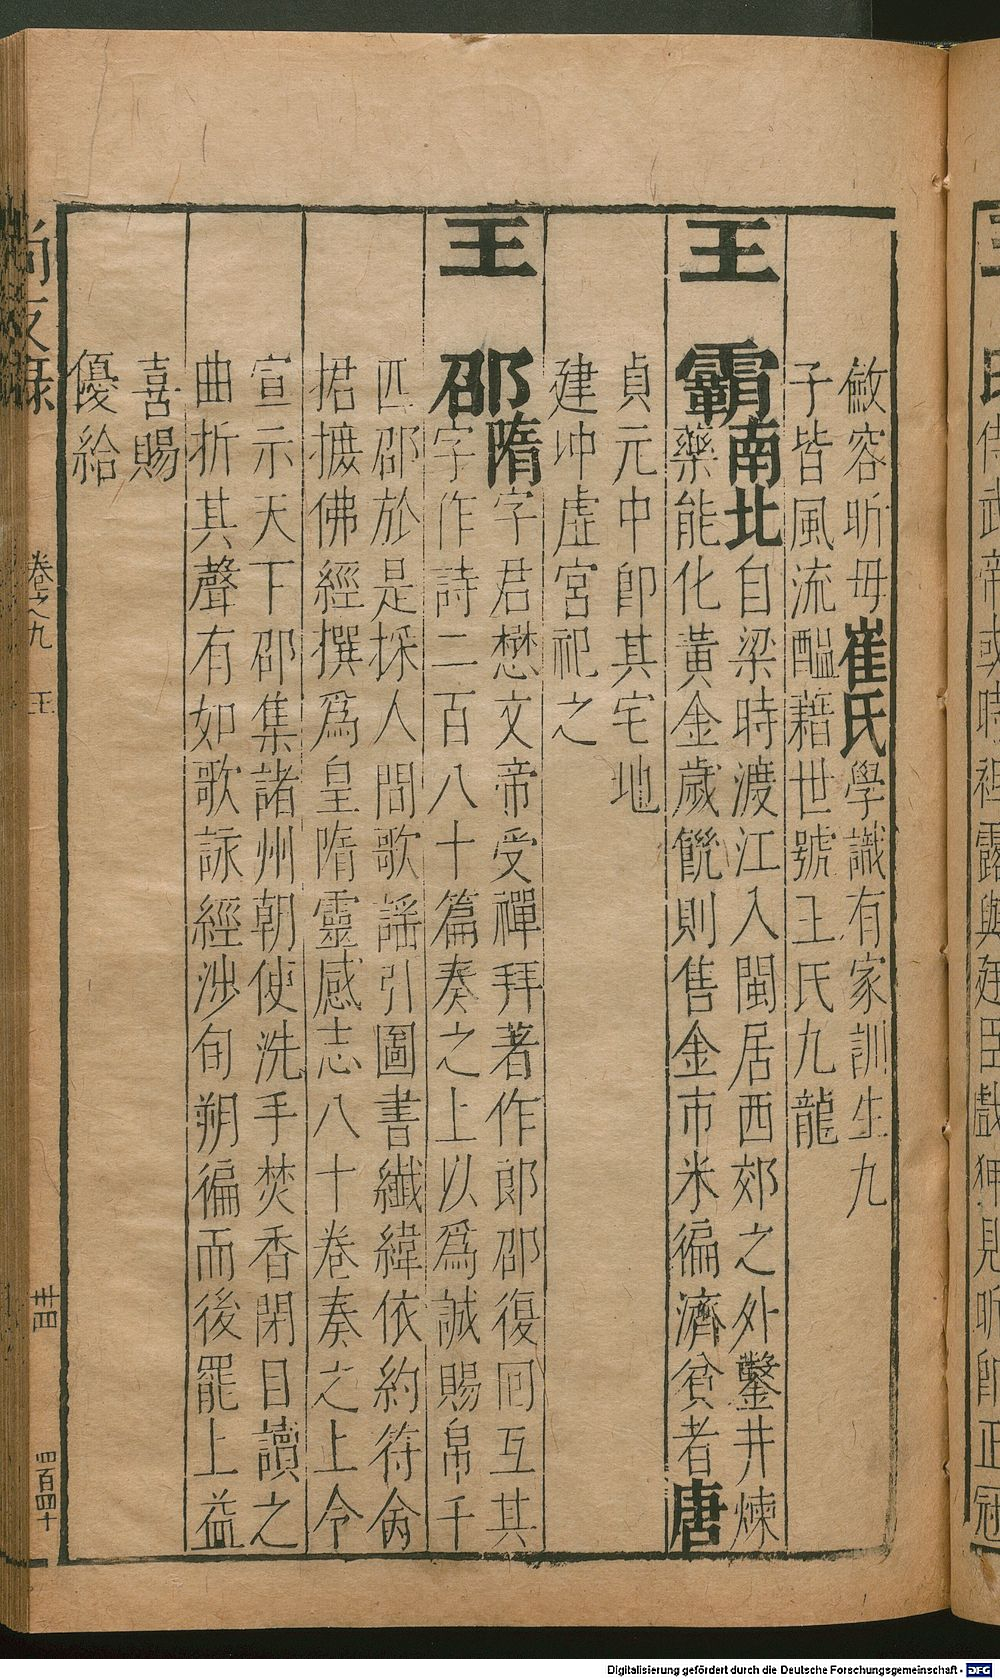 斂容昕毋崔氏學識有家訓生九
子皆風流醞藉世號王氏九龍
王霸南北自梁時渡江入閩居西郊之外鑿井煉
藥能化黃金歲饑則售金市米徧濟貧者唐
貞元中卽其宅地
建冲虛宮祀之
王邵隋字君懋文帝受禪拜著作郎邵復囘互其
字作詩二百八十篇奏之上以爲誠賜帛千
匹邵於是採人間歌謠引圖書纖緯依約符命
捃摭佛經撰爲皇隋靈感志八十卷奏之上令
宣示天下邵集諸州朝使洗手焚香閉目讀之
曲折其聲有如歌詠經涉旬朔徧而後罷上益
喜賜
優給
尚友錄
卷之九
王
廿四
四百四十
Digitalisierung gefördert durch die Deutsche Forschungsgemeinschaft - DFG